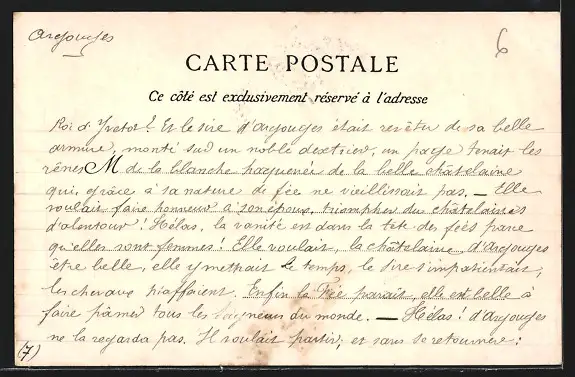 Argouges
6
CARTE POSTALE
Ce côté est exclusivement réservé à l'adresse
Roi d'Yvetot ! Et le sire d'Argouges était revêtu de sa belle
armure, monté sur un noble destrier, un page tenait les
rênes M de la blanche haquenée de la belle châtelaine
qui, grâce à sa nature de fée ne vieillissait pas. — Elle
voulait faire honneur à son époux, triompher des châtelaines
d'alentour ! Hélas, la vanité est dans la tête des fées parce
qu'elles sont femmes ! Elle voulait, la châtelaine d'Argouges
être belle, elle y mettait le temps, le sire s'impatientait,
les chevaux piaffaient. Enfin la Fée paraît, elle est belle à
faire pâmer tous les seigneurs du monde. — Hélas ! d'Argouges
ne la regarda pas. Il voulait partir, et sans se retourner :
(7)